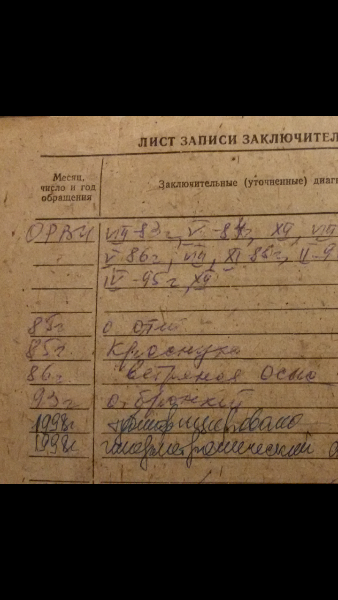 ЛИСТ ЗАПИСИ ЗАКЛЮЧИТЕЛ
Месяц, число и год обращения
Заключительные (уточненные) диагн
ОРВИ VIII-83г, V-84г, XII, VIII
V-86г, VIII, XI 86г, II-9
IV-95г, XII
85г о отит
85г. Краснуха
86г ветряная оспа
93г о. бронхит
1998г
1998г